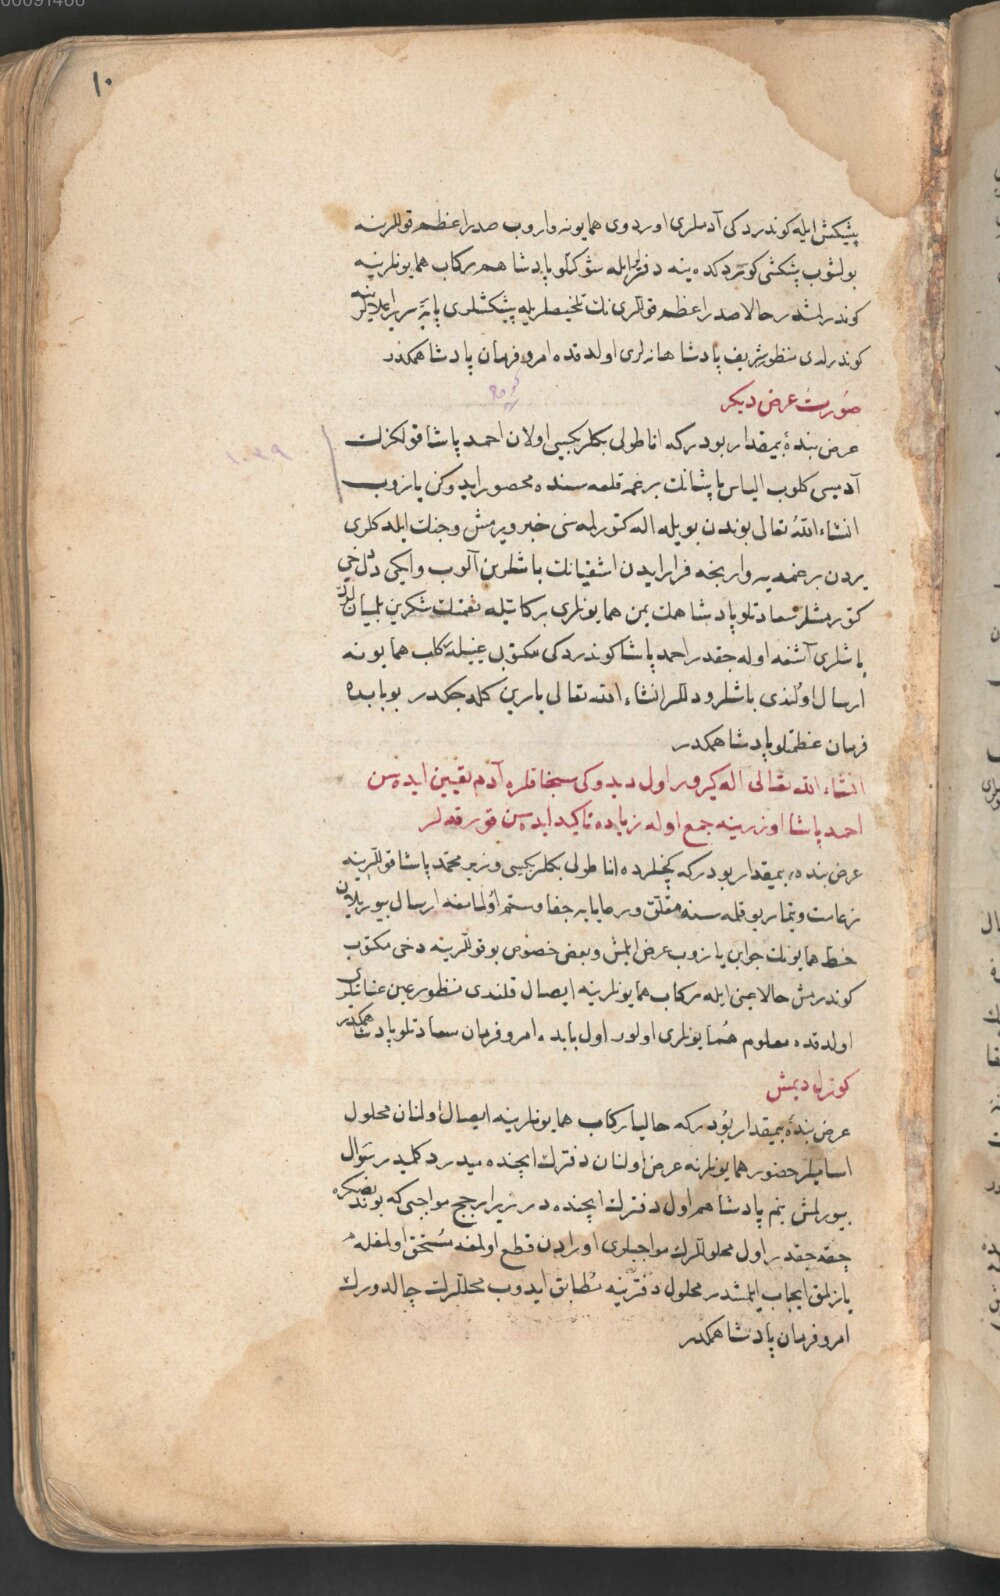 00091468
١٠
پیشكش ایله كوندردكی آدملری اوردوی همایونه واروب صدر اعظم قوللرینه
بولشوب پیشكشی كوتردكده ینه دفترلر ایله شوكتلو پادشاهم ركاب همایونلرینه
كوندرلمشدر حالا صدر اعظم قوللری نك تلخیصلریله پیشكشلری پایهٔ سریر اعلالرینه
كوندرلدی منظور شریف پادشاهانه‌لری اولدقده امر و فرمان پادشاهمكدر
صورت عرض دیكر
عرض بندهٔ بیمقدار بودركه اناطولی بكلربكیسی اولان احمد پاشا قولكزك
١٠٣٩
آدمیسی كلوب الیاس پاشانك برغمه قلعه سنده محصور ایدوكن یازوب
انشاء الله تعالی بوندن بویله اله كتورلمه سنی خبر ویرمش و جنك ایلدكلری
یردن برغمه یه وارنجه فرار ایدن اشقیانك باشلرین آلوب و ایكی دل دخی
كتورمشلر سعادتلو پادشاهمك یمن همایونلری بركاتیله نعمتك شكرین بلمیانلرك
باشلری آشفته اوله جقدر احمد پاشا كوندردكی مكتوبی عینیله ركاب همایونه
ارسال اولندی باشلر و دللر انشاء الله تعالی یارین كله جكدر بوبابده
فرمان عظمتلو پادشاهمكدر
انشاء الله تعالی اله كیرور اول دیدوكی سنجاقلره آدم تعیین ایده سن
احمد پاشا اوزرینه جمع اوله زیاده تاكید ایده سن قورقه لر
عرض بندهٔ بیمقدار بودركه كچنلرده اناطولی بكلربكیسی وزیر محمد پاشا قوللرینه
زعامت و تیمار بوقلمه سنه متعلق و رعایایه جفا و ستم اولنمامغه ارسال بیوریلان
خط همایونك جوابن یازوب عرض ایلمش و بعض خصوص بو قوللرینه دخی مكتوب
كوندرمش حالا عینی ایله ركاب همایونلرینه ایصال قلندی منظور عین عنایتلری
اولدقده معلوم همایونلری اولور اول بابده امر و فرمان سعادتلو پادشاهمكدر
كوزل دیمش
عرض بندهٔ بیمقدار بودركه حالیا ركاب همایونلرینه ایصال اولنان محلول
اسامیلر حضور همایونلرنه عرض اولنان دفترك ایچنده میدر دكلمیدر سؤال
بیورلمش بنم پادشاهم اول دفترك ایچنده در زیرا برجج مواجبی كه بوندنصكره
چقه جقدر اول محلوللرك مواجبلری اورادن قطع اولمغه مستحق اولمغله
یازلمق ایجاب ایلمشدر محلول دفترینه تطابق ایدوب محللرك چالدورلك
امر و فرمان پادشاهمكدر